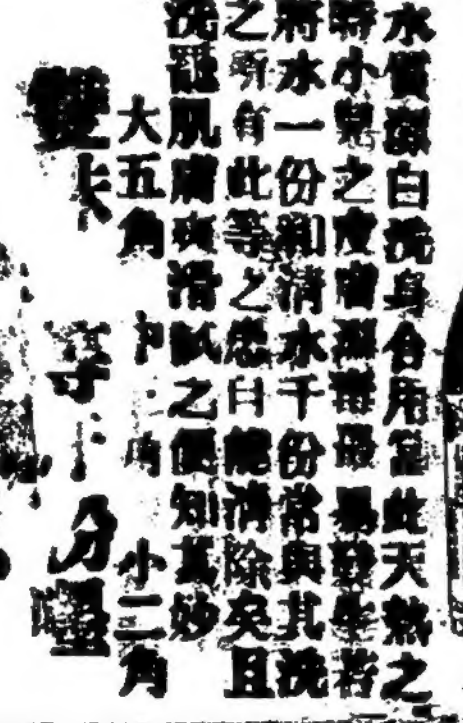 水質潔白洗身合用當此天熱之
時小兒之皮膚濕毒最易發生若
將水一份和清水千份常與其洗
之所有此等之患自能消除矣且
洗罷肌膚爽滑試之便知其妙
大五角 中 角 小二角
雙 分